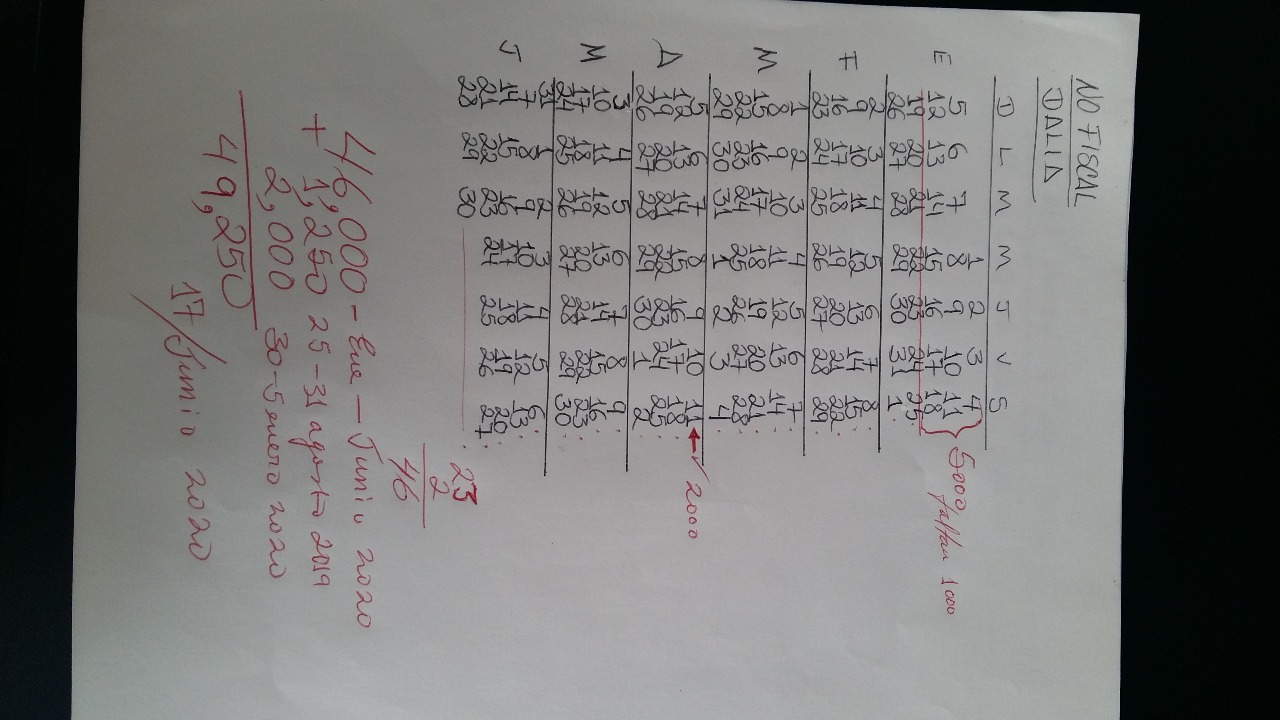 NO FISCAL
DALIA
D L M M J V S
E 1 2 3 4
5 6 7 8 9 10 11 } 5000 faltan 1000
12 13 14 15 16 17 18
19 20 21 22 23 24 25
26 27 28 29 30 31 1
F 2 3 4 5 6 7 8
9 10 11 12 13 14 15
16 17 18 19 20 21 22
23 24 25 26 27 28 29
M 1 2 3 4 5 6 7
8 9 10 11 12 13 14
15 16 17 18 19 20 21
22 23 24 25 26 27 28
29 30 31 1 2 3 4
A 5 6 7 8 9 10 11 ← ✓ 2000
12 13 14 15 16 17 18
19 20 21 22 23 24 25
26 27 28 29 30 1 2
M 3 4 5 6 7 8 9
10 11 12 13 14 15 16
17 18 19 20 21 22 23
24 25 26 27 28 29 30
J 31 1 2 3 4 5 6
7 8 9 10 11 12 13
14 15 16 17 18 19 20
21 22 23 24 25 26 27
28 29 30
23
2
46
46,000 - Ene — Junio 2020
+ 1,250 25 - 31 agosto 2019
2,000 30 - 5 enero 2020
49,250
17/Junio 2020